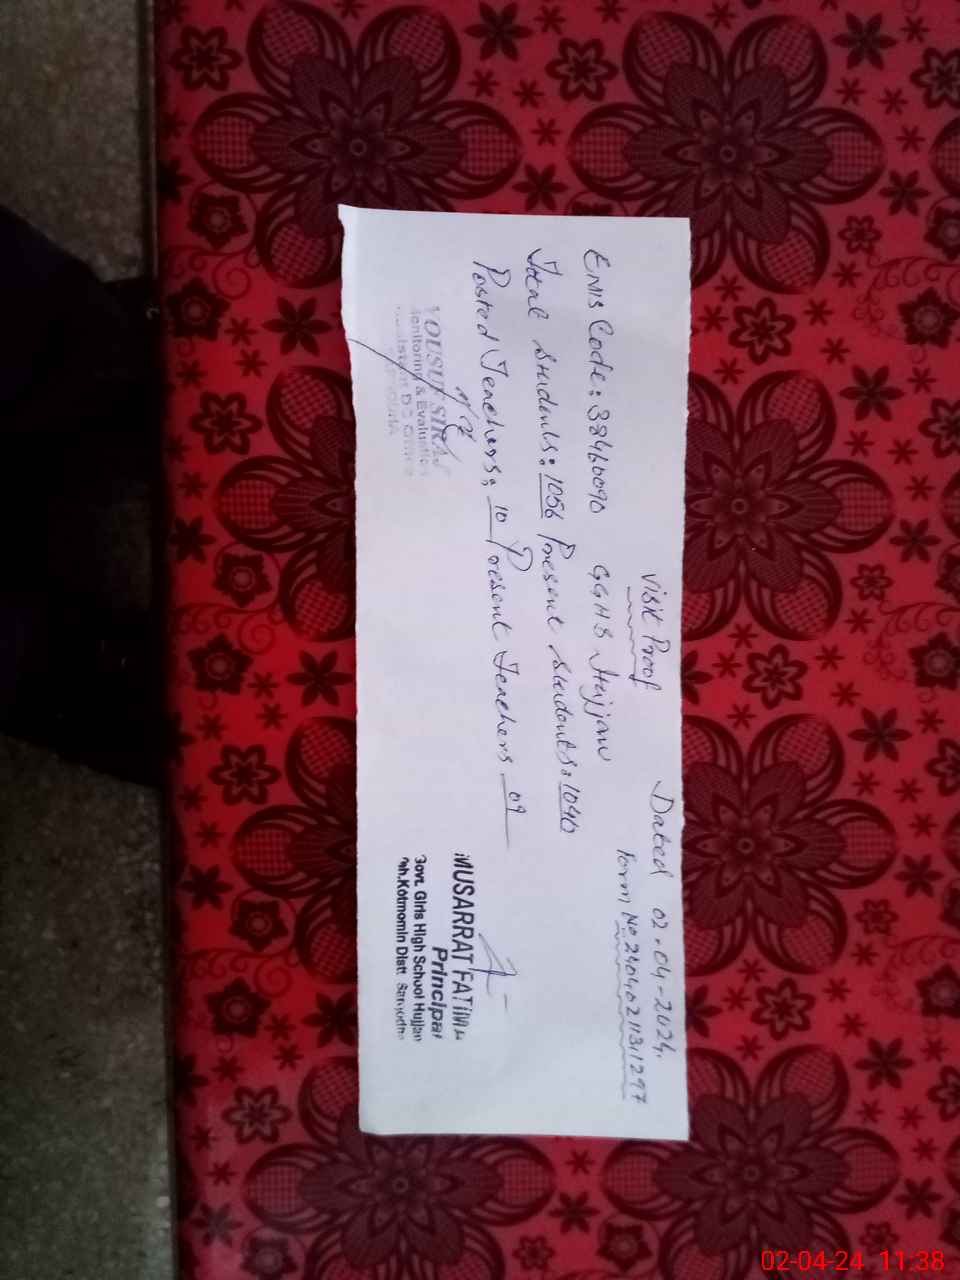 Visit Proof
Dated 02-04-2024.
Form No. 240402113,1297
EMIS Code: 38460090 GGHS Hujjan
Total Students: 1056 Present Students: 1040
Posted Teachers: 10 Present Teachers 09
YOUSUF SIRAJ
Monitoring & Evaluation
Assistant DC Office
MUSARRAT FATIMA
Principal
Govt. Girls High School Hujjan
Teh.Kotmomin Distt. Sargodha
02-04-24 11:38